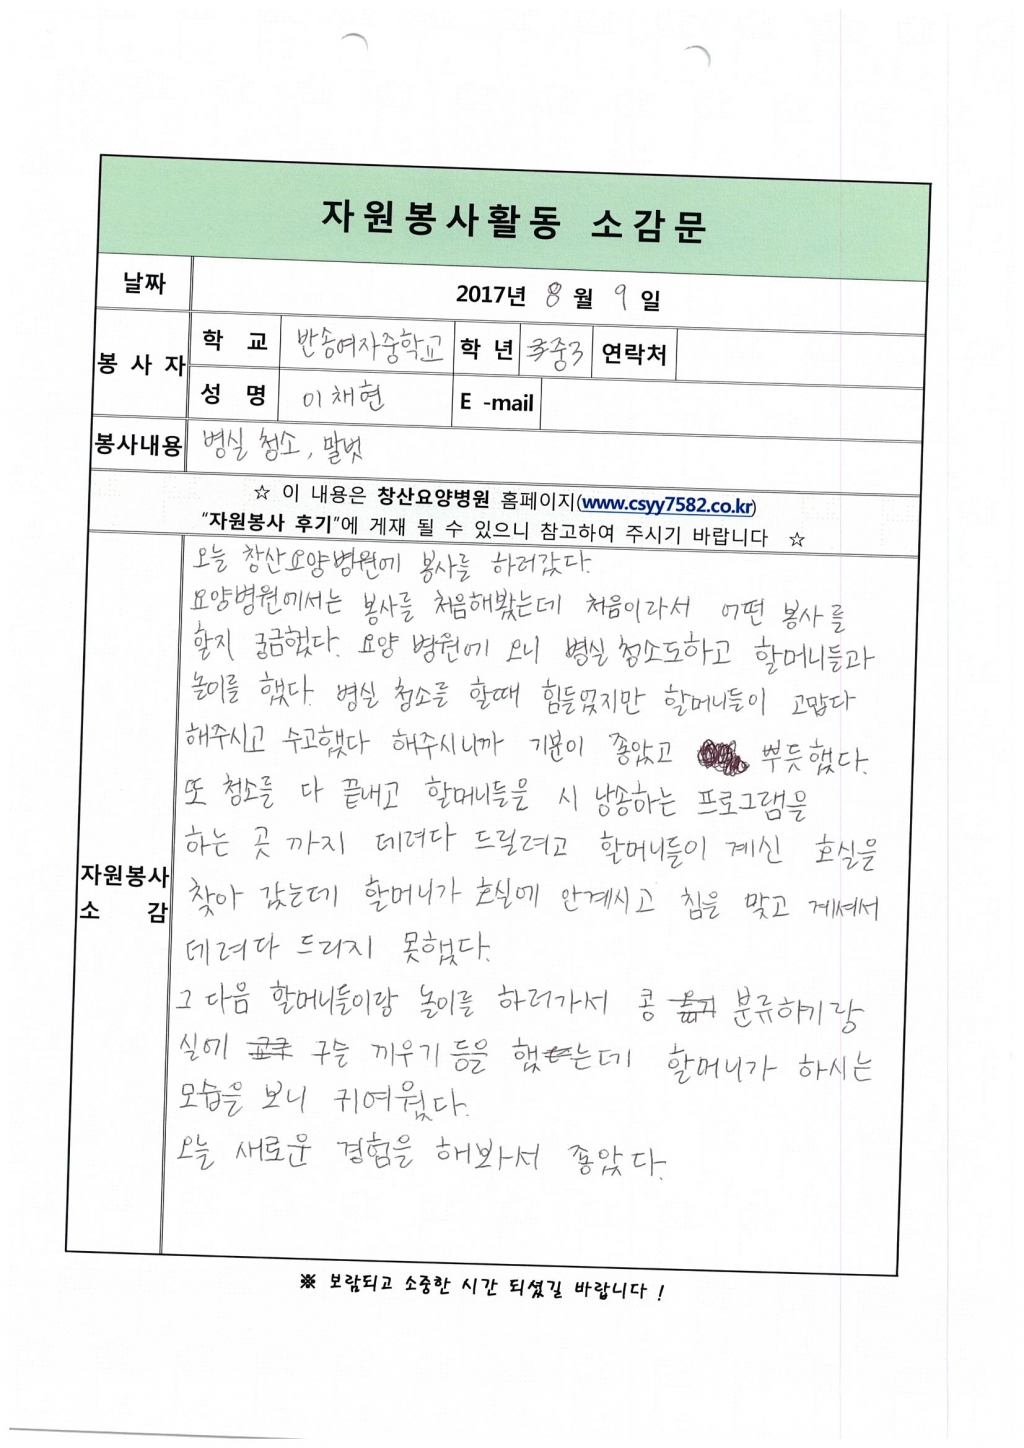 자원봉사활동 소감문
날짜 2017년 8월 9일
봉사자 학교 반송여자중학교 학년 중3 연락처
성명 이채현 E-mail
봉사내용 병실 청소, 말벗
☆ 이 내용은 창산요양병원 홈페이지(www.csyy7582.co.kr)
"자원봉사 후기"에 게재 될 수 있으니 참고하여 주시기 바랍니다 ☆
자원봉사
소 감
오늘 창산요양병원에 봉사를 하러갔다.
요양병원에서는 봉사를 처음해봤는데 처음이라서 어떤 봉사를
할지 궁금했다. 요양 병원에 오니 병실 청소도하고 할머니들과
놀이를 했다. 병실 청소를 할때 힘들었지만 할머니들이 고맙다
해주시고 수고했다 해주시니까 기분이 좋았고 뿌듯했다.
또 청소를 다 끝내고 할머니들을 시 낭송하는 프로그램을
하는 곳 까지 데려다 드릴려고 할머니들이 계신 호실을
찾아 갔는데 할머니가 호실에 안계시고 침을 맞고 계셔서
데려다 드리지 못했다.
그 다음 할머니들이랑 놀이를 하러가서 콩 분류하기랑
실에 구슬 끼우기 등을 했는데 할머니가 하시는
모습을 보니 귀여웠다.
오늘 새로운 경험을 해봐서 좋았다.
※ 보람되고 소중한 시간 되셨길 바랍니다 !